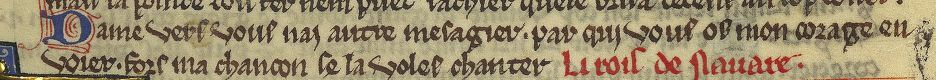 Dame vers vous nai autre mesagier. par qui vous os mon corage en
voier. fors ma chancon se la voles chanter Li rois de navare.